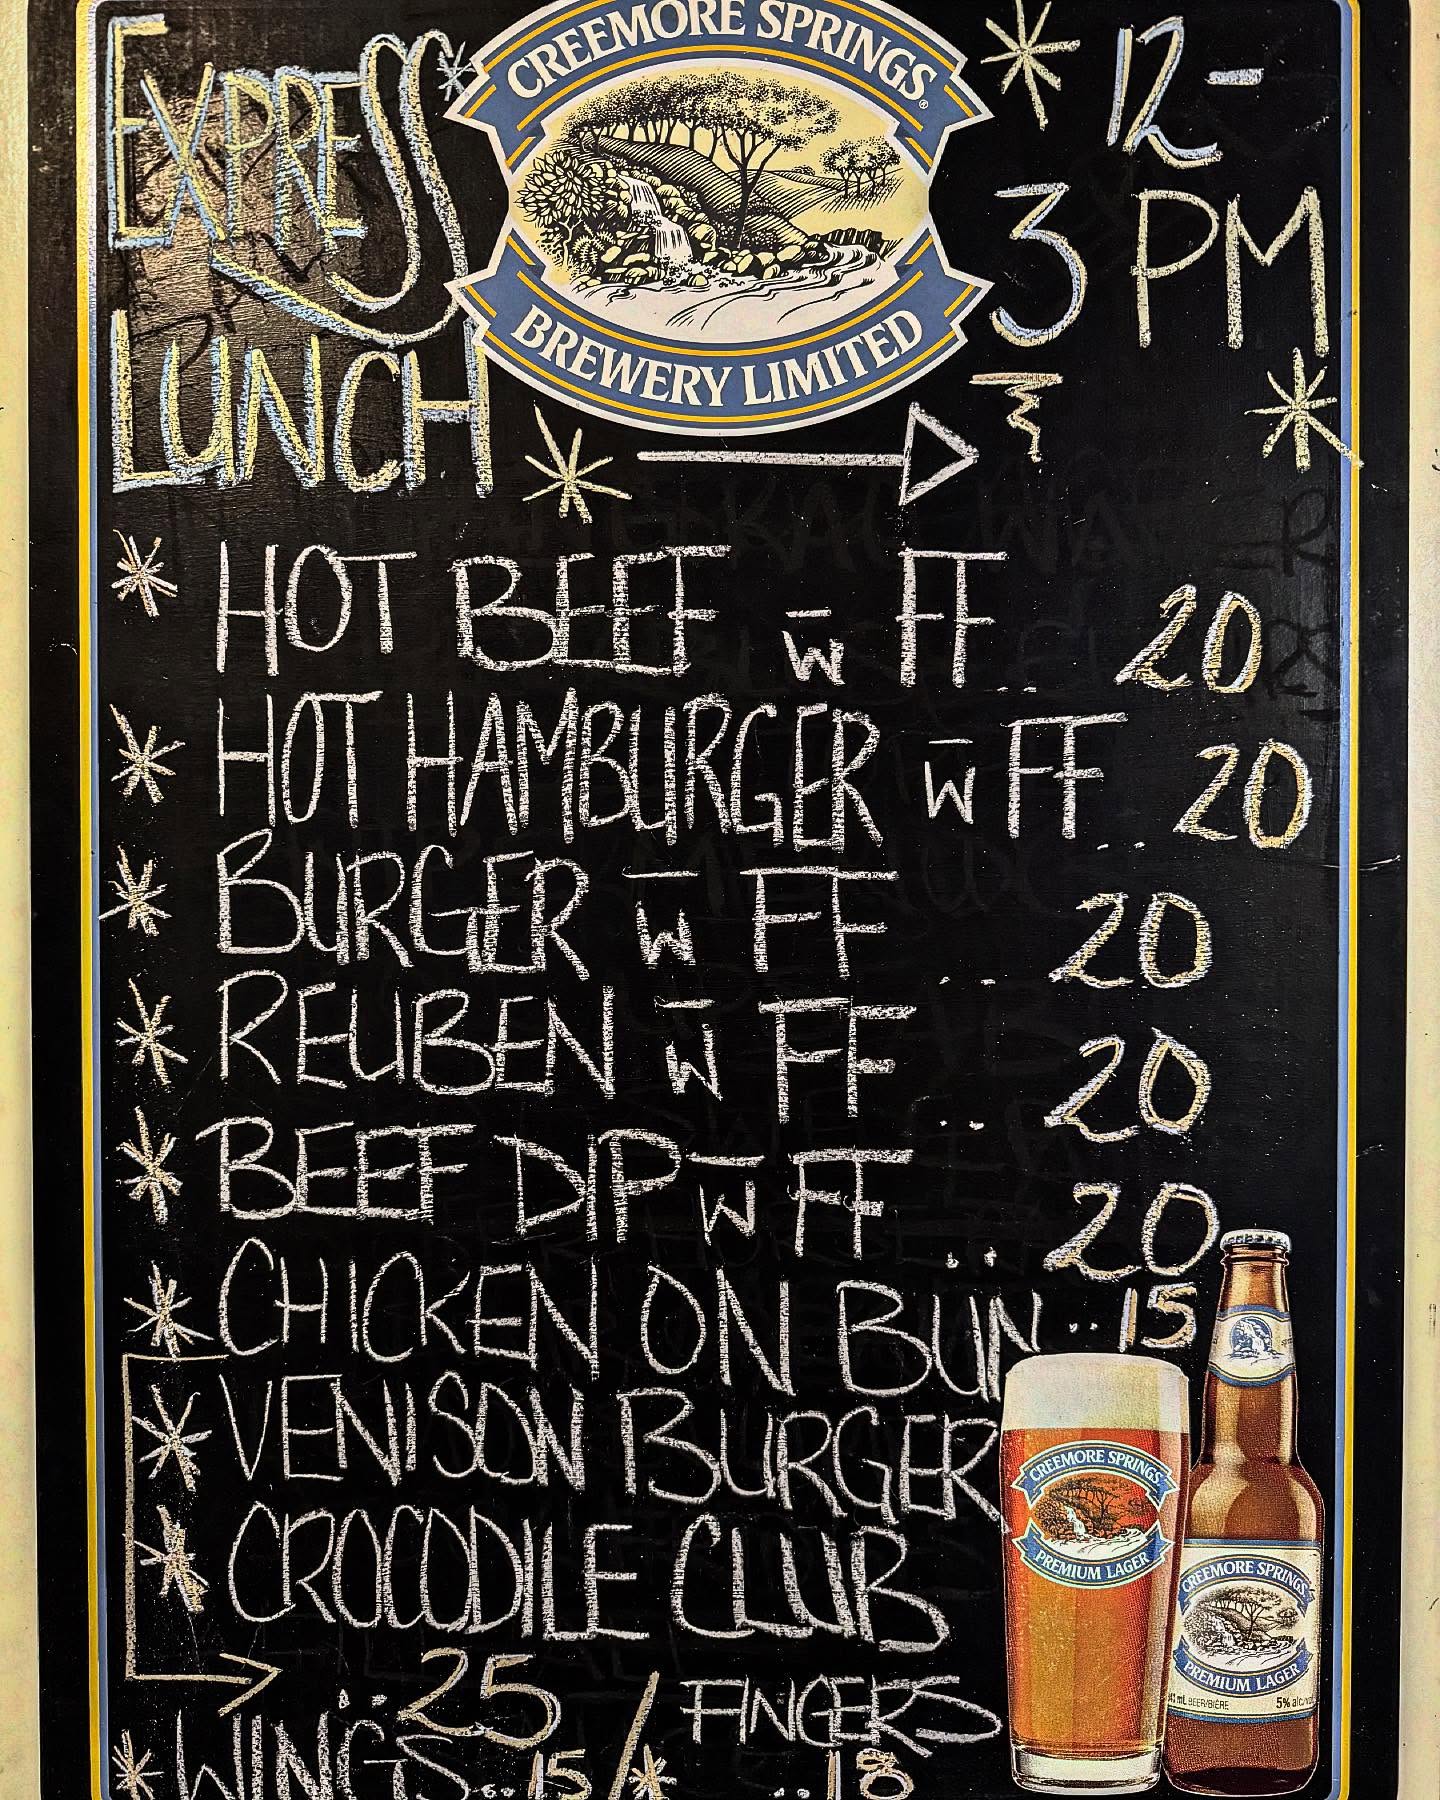 EXPRESS
LUNCH
CREEMORE SPRINGS®
BREWERY LIMITED
12-
3 PM
HOT BEEF w FF .. 20
HOT HAMBURGER w FF .. 20
BURGER w FF .. 20
REUBEN w FF .. 20
BEEF DIP w FF .. 20
CHICKEN ON BUN .. 15
VENISON BURGER
CROCODILE CLUB
.. 25
WINGS .. 15 / FINGERS .. 18
CREEMORE SPRINGS
PREMIUM LAGER
CREEMORE SPRINGS
PREMIUM LAGER
BEER/BIÈRE 5% alc/vol